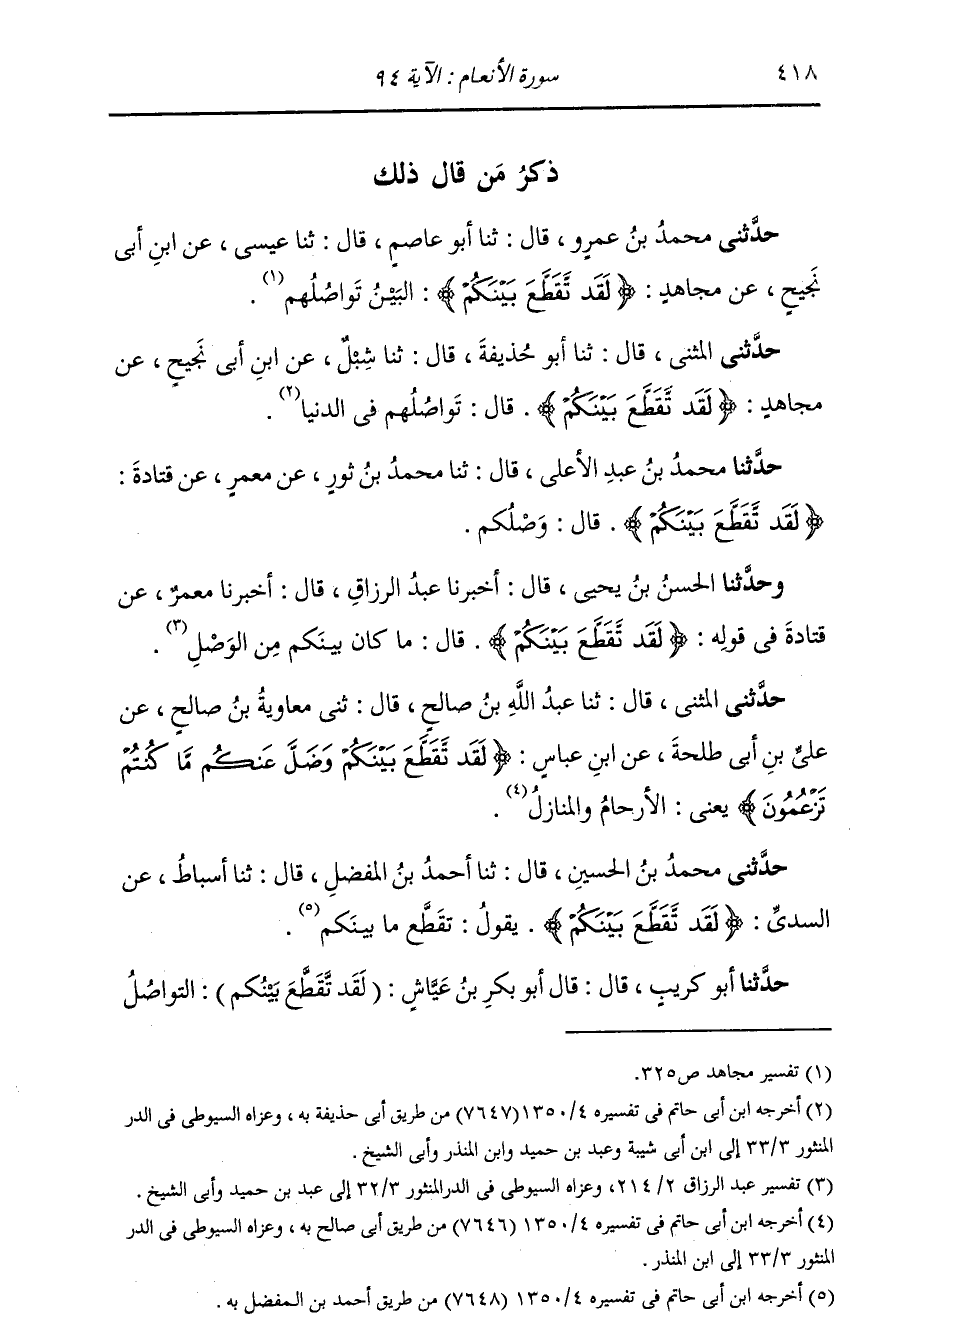 ٤١٨ سورة الأنعام : الآية ٩٤
ذكرُ مَن قال ذلك
حدَّثنى محمدُ بنُ عمرٍو ، قال : ثنا أبو عاصمٍ ، قال : ثنا عيسى ، عن ابنِ أبى
نَجيحٍ ، عن مجاهدٍ : ﴿ لَقَد تَّقَطَّعَ بَيْنَكُمْ ﴾ : البَيْنُ تَواصُلُهم(١) .
حدَّثنى المثنى ، قال : ثنا أبو حُذيفةَ ، قال : ثنا شِبْلٌ ، عن ابنِ أبى نَجيحٍ ، عن
مجاهدٍ : ﴿ لَقَد تَّقَطَّعَ بَيْنَكُمْ ﴾ . قال : تَواصُلُهم فى الدنيا(٢) .
حدَّثنا محمدُ بنُ عبدِ الأعلى ، قال : ثنا محمدُ بنُ ثورٍ ، عن معمرٍ ، عن قتادةَ :
﴿ لَقَد تَّقَطَّعَ بَيْنَكُمْ ﴾ . قال : وَصْلُكم .
وحدَّثنا الحسنُ بنُ يحيى ، قال : أخبرنا عبدُ الرزاقِ ، قال : أخبرنا معمرٌ ، عن
قتادةَ فى قولِه : ﴿ لَقَد تَّقَطَّعَ بَيْنَكُمْ ﴾ . قال : ما كان بينَكم مِن الوَصْلِ(٣) .
حدَّثنى المثنى ، قال : ثنا عبدُ اللَّهِ بنُ صالحٍ ، قال : ثنى معاويةُ بنُ صالحٍ ، عن
علىِّ بنِ أبى طلحةَ ، عن ابنِ عباسٍ : ﴿ لَقَد تَّقَطَّعَ بَيْنَكُمْ وَضَلَّ عَنكُم مَّا كُنتُمْ
تَزْعُمُونَ ﴾ يعنى : الأرحامُ والمنازلُ(٤) .
حدَّثنى محمدُ بنُ الحسينِ ، قال : ثنا أحمدُ بنُ المفضلِ ، قال : ثنا أسباطُ ، عن
السدىِّ : ﴿ لَقَد تَّقَطَّعَ بَيْنَكُمْ ﴾ . يقولُ : تقَطَّع ما بينَكم(٥) .
حدَّثنا أبو كريبٍ ، قال : قال أبو بكرِ بنُ عَيَّاشٍ : ( لَقَد تَّقَطَّعَ بَيْنُكم ) : التواصُلُ
(١) تفسير مجاهد ص٣٢٥.
(٢) أخرجه ابن أبى حاتم فى تفسيره ١٣٥٠/٤ (٧٦٤٧) من طريق أبى حذيفة به ، وعزاه السيوطى فى الدر
المنثور ٣٣/٣ إلى ابن أبى شيبة وعبد بن حميد وابن المنذر وأبى الشيخ .
(٣) تفسير عبد الرزاق ٢/ ٢١٤، وعزاه السيوطى فى الدرالمنثور ٣٢/٣ إلى عبد بن حميد وأبى الشيخ .
(٤) أخرجه ابن أبى حاتم فى تفسيره ١٣٥٠/٤ (٧٦٤٦) من طريق أبى صالح به ، وعزاه السيوطى فى الدر
المنثور ٣٣/٣ إلى ابن المنذر .
(٥) أخرجه ابن أبى حاتم فى تفسيره ١٣٥٠/٤ (٧٦٤٨) من طريق أحمد بن المفضل به .